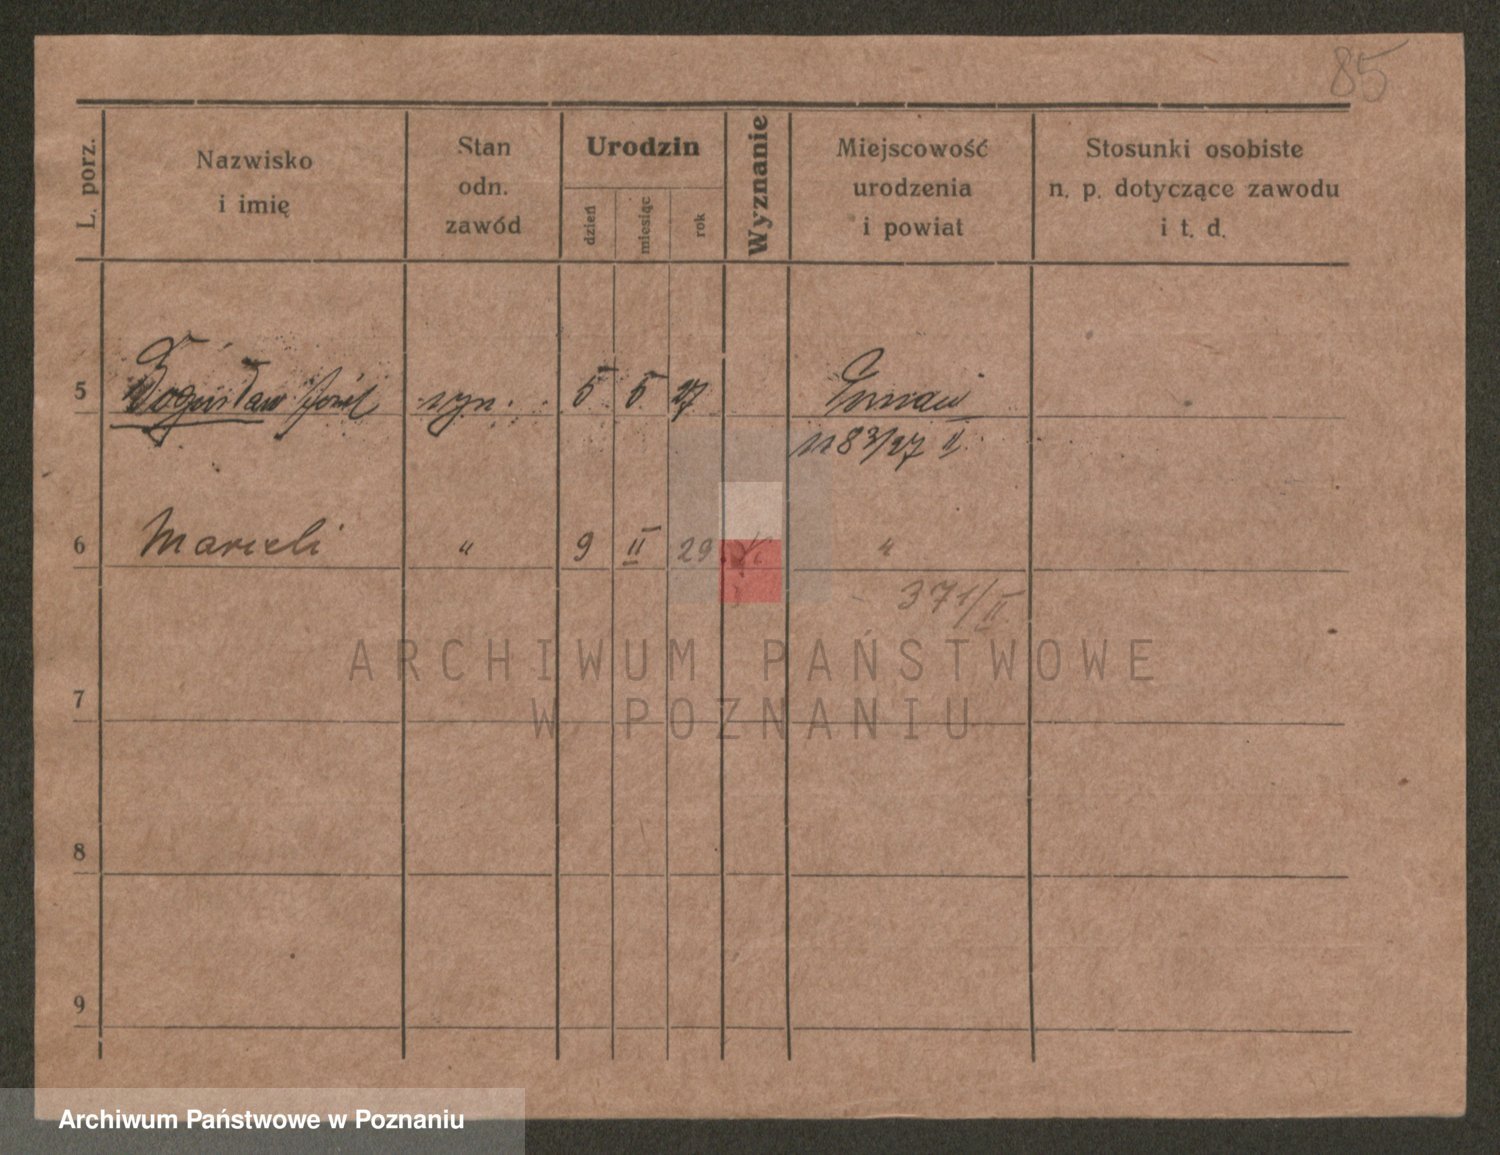 85
L. porz.
Nazwisko i imię
Stan odn. zawód
Urodzin
dzień
miesiąc
rok
Wyznanie
Miejscowość urodzenia i powiat
Stosunki osobiste n. p. dotyczące zawodu i t. d.
5 Bogusław Józef syn. 5 5 27
83/27 II
6 Marceli " 9 II 29 "
371/II
ARCHIWUM PAŃSTWOWE
W POZNANIU
7
8
9
Archiwum Państwowe w Poznaniu